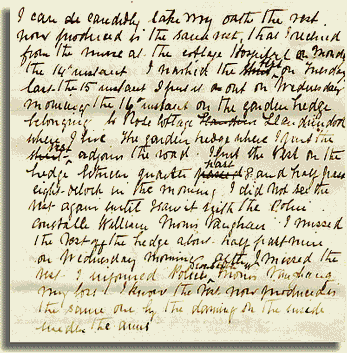 I can de candidly take my oath the vest
now produced is the same vest, that I received
from the nurse at the Cottage Hospital on Monday
the 14th instant I washed the vest on Tuesday
last the 15th instant I put it out on Wednesday
morning the 16th instant on the garden hedge
belonging to Rose Cottage Llandrindod
where I live. The garden hedge where I put the
vest adjoins the road. I put the Vest on the
hedge between quarter past 8 and half past
eight o'clock in the morning, I did not see the
vest again until I saw it with the Police
Constable William Morris Vaughan. I missed
the Vest off the hedge about half past nine
on Wednesday morning after I missed the
vest. I informed Police Morris Vaughan
my loss. I know the Vest now produced is
the same one by the darning on the inside
under the arms